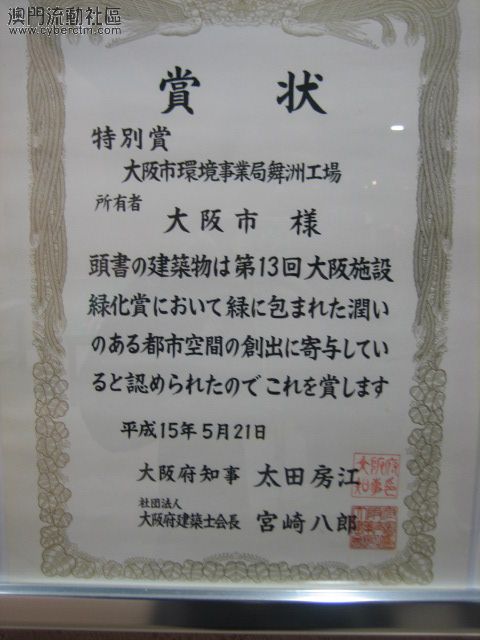 澳門流動社區
www.cyberctm.com
賞状
特別賞
大阪市環境事業局舞洲工場
所有者
大阪市 様
頭書の建築物は第13回大阪施設
緑化賞において緑に包まれた潤い
のある都市空間の創出に寄与してい
ると認められたのでこれを賞します
平成15年5月21日
大阪府知事 太田房江
社団法人
大阪府建築士会長 宮崎八郎